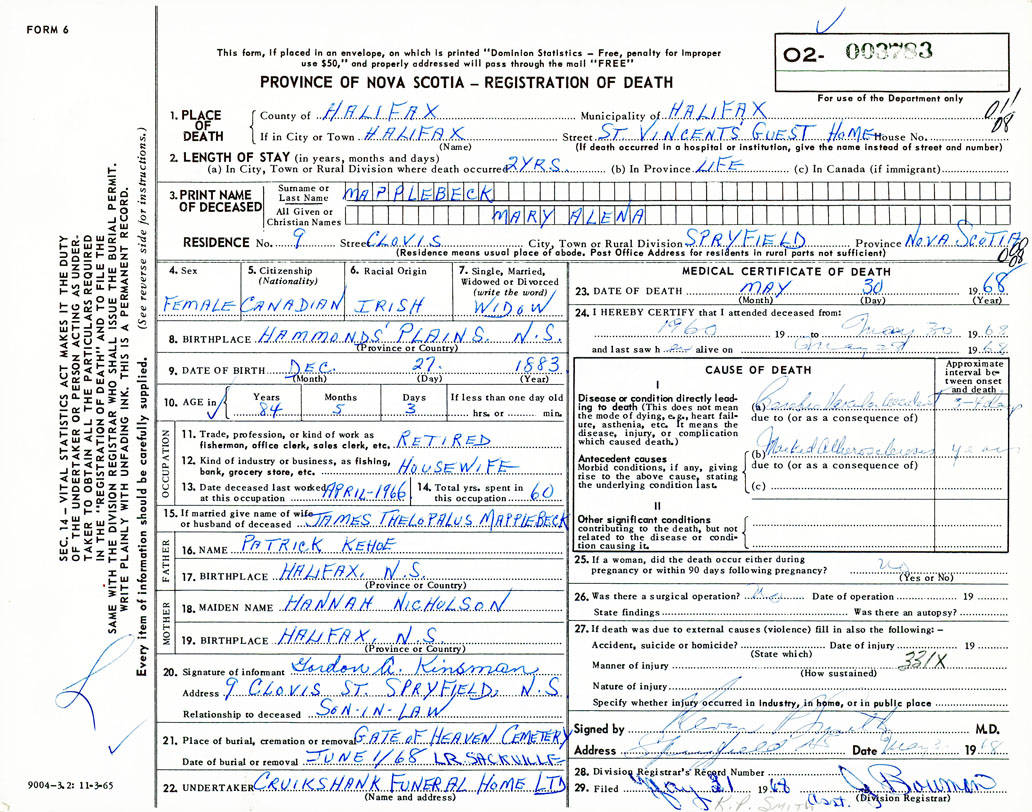 FORM 6
This form, if placed in an envelope, on which is printed "Dominion Statistics – Free, penalty for improper
use $50," and properly addressed will pass through the mail "FREE"
PROVINCE OF NOVA SCOTIA – REGISTRATION OF DEATH
02- 003783
For use of the Department only
011
08
1. PLACE OF DEATH
County of HALIFAX Municipality of HALIFAX
If in City or Town HALIFAX Street ST VINCENTS' GUEST HOME House No.
(Name) (If death occurred in a hospital or institution, give the name instead of street and number)
2. LENGTH OF STAY (in years, months and days)
(a) In City, Town or Rural Division where death occurred 2YRS. (b) In Province LIFE (c) In Canada (if immigrant)
3. PRINT NAME OF DECEASED
Surname or Last Name MAPPLEBECK
All Given or Christian Names MARY ALENA
RESIDENCE No. 9 Street CLOVIS City, Town or Rural Division SPRYFIELD Province NOVA SCOTIA
(Residence means usual place of abode. Post Office Address for residents in rural parts not sufficient)
4. Sex
FEMALE
5. Citizenship
(Nationality)
CANADIAN
6. Racial Origin
IRISH
7. Single, Married,
Widowed or Divorced
(write the word)
WIDOW
8. BIRTHPLACE HAMMONDS' PLAINS. N.S.
(Province or Country)
9. DATE OF BIRTH DEC. 27. 1883
(Month) (Day) (Year)
10. AGE in
Years Months Days If less than one day old
84 5 3 hrs. or min.
OCCUPATION
11. Trade, profession, or kind of work as
fisherman, office clerk, sales clerk, etc. RETIRED
12. Kind of industry or business, as fishing,
bank, grocery store, etc. HOUSEWIFE
13. Date deceased last worked
at this occupation APRIL-1966
14. Total yrs. spent in
this occupation 60
15. If married give name of wife
or husband of deceased JAMES THELOPALUS MAPPLEBECK
FATHER
16. NAME PATRICK KEHOE
17. BIRTHPLACE HALIFAX, N.S.
(Province or Country)
MOTHER
18. MAIDEN NAME HANNAH NICHOLSON
19. BIRTHPLACE HALIFAX, N.S.
(Province or Country)
20. Signature of informant Gordon A. Kinsman
Address 9 CLOVIS ST. SPRYFIELD, N.S.
Relationship to deceased SON-IN-LAW
21. Place of burial, cremation or removal GATE OF HEAVEN CEMETERY
Date of burial or removal JUNE 1/68 LR. SACKVILLE
22. UNDERTAKER CRUIKSHANK FUNERAL HOME LTD
(Name and address)
MEDICAL CERTIFICATE OF DEATH
23. DATE OF DEATH MAY 30 1968
(Month) (Day) (Year)
24. I HEREBY CERTIFY that I attended deceased from:
1960 19 to May 30 1968
and last saw h er alive on May 28 1968
CAUSE OF DEATH
Approximate
interval be-
tween onset
and death
I
Disease or condition directly lead-
ing to death (This does not mean
the mode of dying, e.g., heart fail-
ure, asthenia, etc. It means the
disease, injury, or complication
which caused death.)
(a) Vascular Accident 3-4 days
due to (or as a consequence of)
Antecedent causes
Morbid conditions, if any, giving
rise to the above cause, stating
the underlying condition last.
(b) Marked Atherosclerosis years
due to (or as a consequence of)
(c)
II
Other significant conditions
contributing to the death, but not
related to the disease or condi-
tion causing it.
25. If a woman, did the death occur either during
pregnancy or within 90 days following pregnancy? no
(Yes or No)
26. Was there a surgical operation? No Date of operation 19
State findings Was there an autopsy?
27. If death was due to external causes (violence) fill in also the following: –
Accident, suicide or homicide? Date of injury 19
(State which)
Manner of injury 331X
(How sustained)
Nature of injury
Specify whether injury occurred in industry, in home, or in public place
Signed by M.D.
Address Spryfield NS Date 1968
28. Division Registrar's Record Number
29. Filed May 31 1968 J Bowmen
(Division Registrar)
K.P. SMITH
SEC. 14 – VITAL STATISTICS ACT MAKES IT THE DUTY
OF THE UNDERTAKER OR PERSON ACTING AS UNDER-
TAKER TO OBTAIN ALL THE PARTICULARS REQUIRED
IN THE "REGISTRATION OF DEATH" AND TO FILE THE
SAME WITH THE DIVISION REGISTRAR WHO SHALL ISSUE THE BURIAL PERMIT.
WRITE PLAINLY WITH UNFADING INK. THIS IS A PERMANENT RECORD.
Every item of information should be carefully supplied. (See reverse side for instructions.)
9004-3.2: 11-3-65